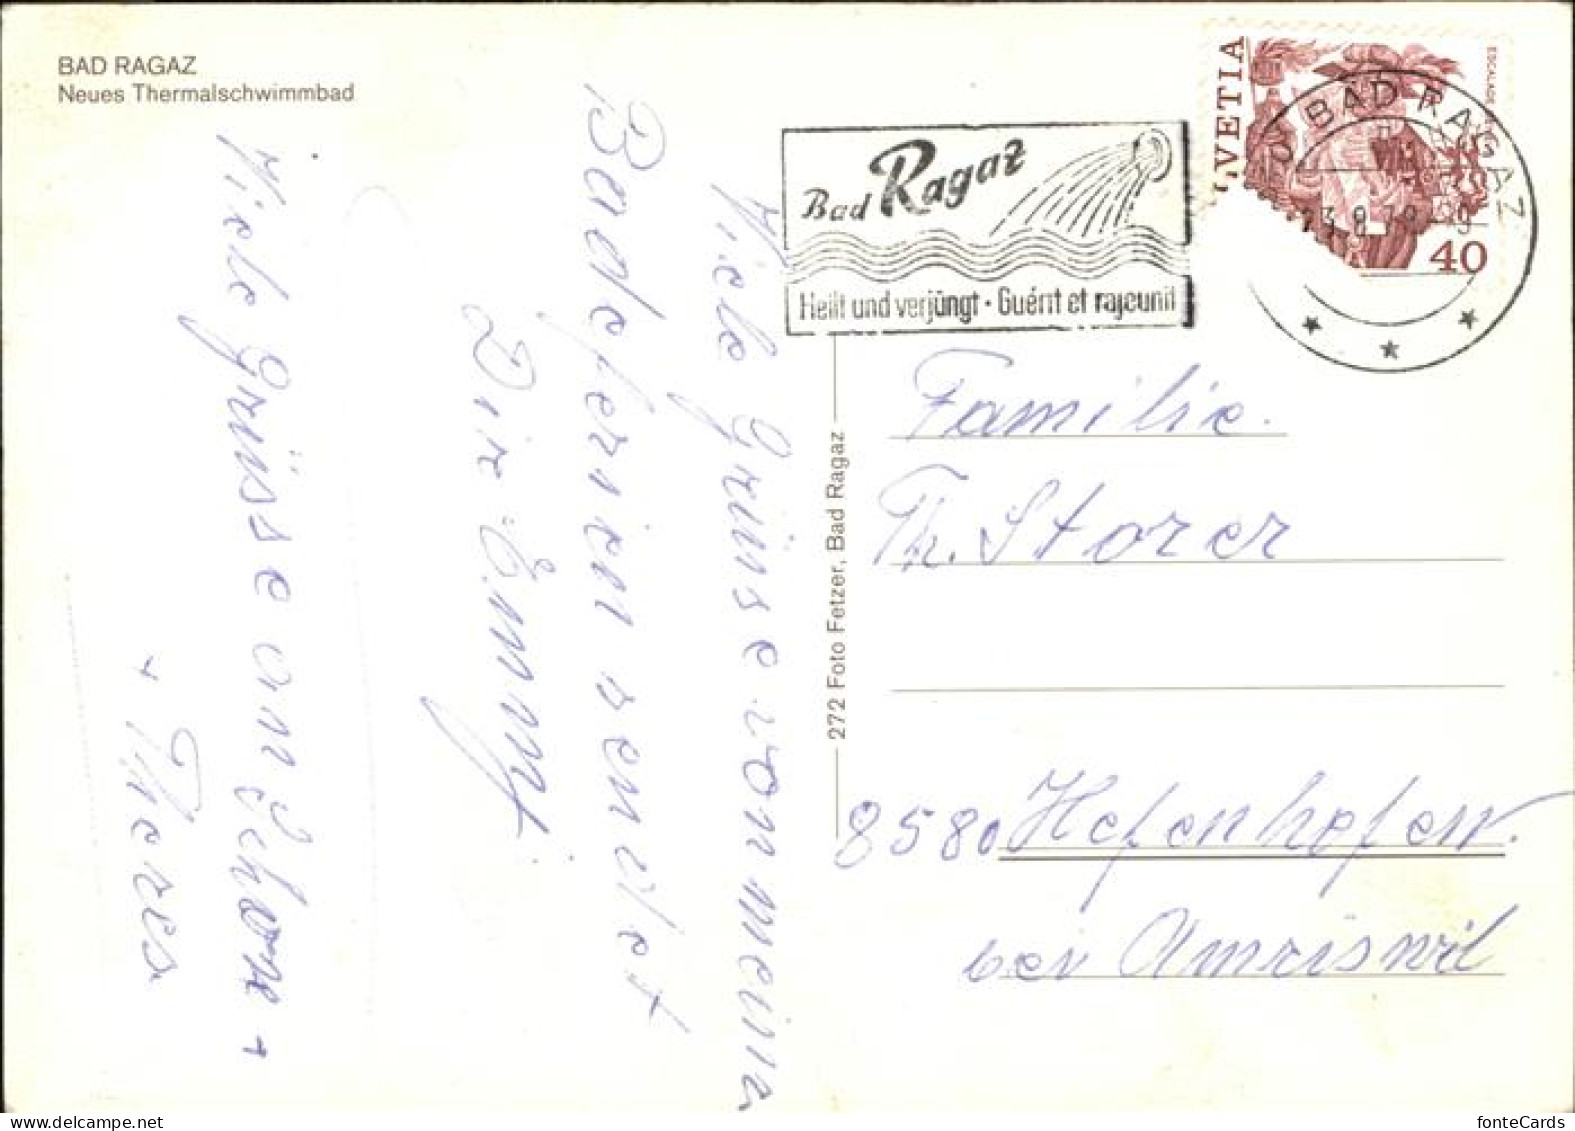 BAD RAGAZ
Neues Thermalschwimmbad
Viele Grüsse von meinen
Badeferien sendet
Dir Emmy
Viele Grüsse an
+
+ Theres
272 Foto Fetzer, Bad Ragaz
Bad Ragaz
Heilt und verjüngt · Guérit et rajeunit
HELVETIA
ESCALADE
40
BAD RAGAZ
Familie
Th. Storer
8580 Hefenhofen
bei Amriswil
fonteCards